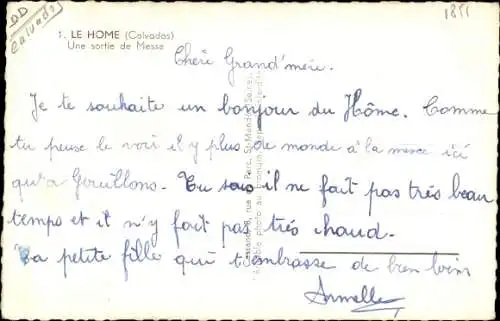 DD
Calvados
1851
1. LE HOME (Calvados)
Une sortie de Messe
Chère Grand'mère.
Je te souhaite un bonjour du Hôme. Comme
tu peuse le voir il y plus de monde a la messe ici
qu'a Gouillons. Tu sais il ne fait pas très beau
temps et il n'y fait pas très chaud.
Ta petite fille qui t'embrasse de bien loin
Armelle